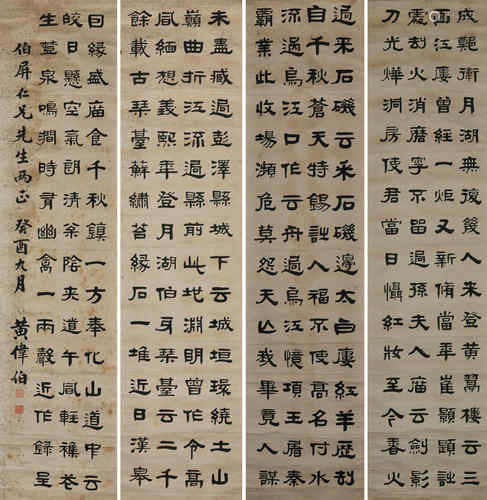 成衛月湖後入来登黃鶴樓云三
面江廔曾經一炬又新脩當年崔顥題詩
去火消磨字不留過孫夫人廟云劍影
刀光燁洞房使君當日懾紅妝至今香火
過采石磯云采石磯邊太白廔紅羊歷劫
自千秋蒼天特錫詩人福不使高名付水
流過烏江口作云舟過烏江憶項王屠秦
霸業此收場瀕危莫怨天亡我畢竟人謀
未盡臧過彭澤縣城下云城垣環繞土山
巔曲折江流過縣前此地淵明曾作令高
風緬想義熙年登月湖伯牙琴臺云二千
餘載古琴臺蘇繡苔緣石一堆近日漢皋
因緣盛廟食千秋鎮一方奉化山道中云
皎日懸空氣朗清茶陰夾道午風輕
生泉鳴澗時有幽禽一兩聲近作錄呈
伯屏仁兄先生兩正 癸酉九月 黃偉伯